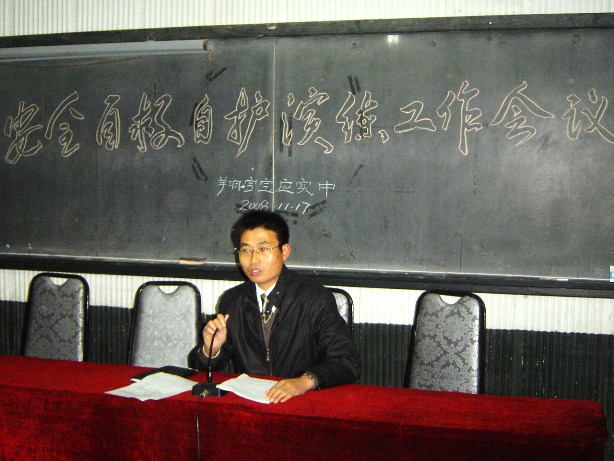 安全自救自护演练工作会议
翔宇宝应实中
2008.11.17